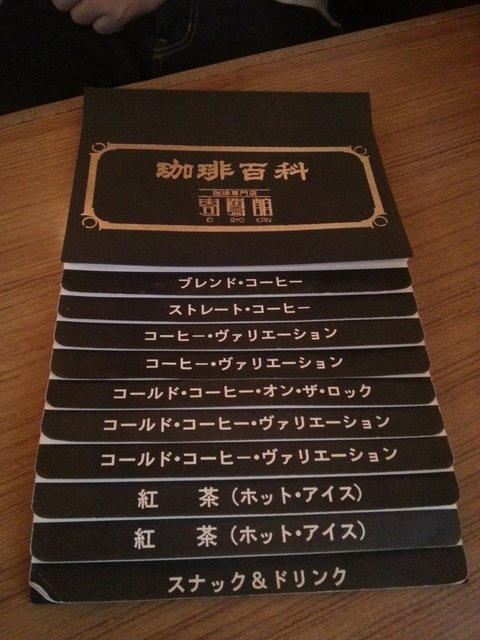 珈琲百科
珈琲専門店
KI RYO KAN
ブレンド・コーヒー
ストレート・コーヒー
コーヒー・ヴァリエーション
コーヒー・ヴァリエーション
コールド・コーヒー・オン・ザ・ロック
コールド・コーヒー・ヴァリエーション
コールド・コーヒー・ヴァリエーション
紅 茶（ホット・アイス）
紅 茶（ホット・アイス）
スナック＆ドリンク